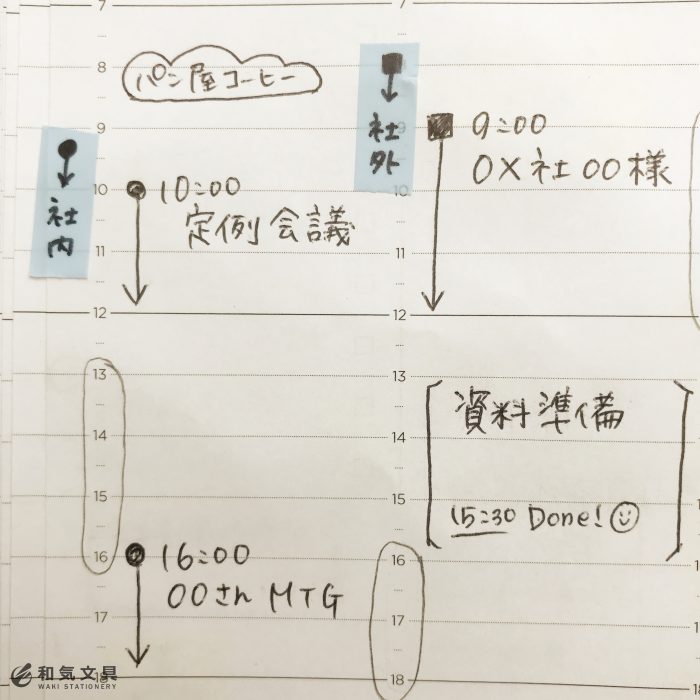 7
8
パン屋コーヒー
9
10
10:00
定例会議
11
12
13
14
15
16
16:00
〇〇さん MTG
17
18
社内
7
8
9
9:00
〇×社〇〇様
10
11
12
13
資料準備
14
15
15:30 Done!
16
17
18
社外
和気文具
WAKI STATIONERY